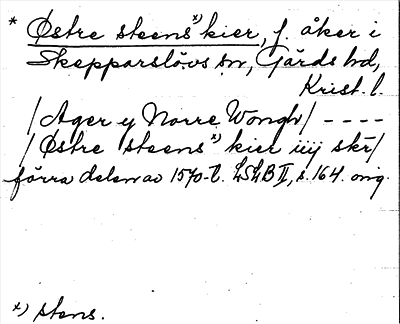 * Østre steens x) kier, f. åker i
Skepparslövs sn, Gärds hd,
Krist. l.
/Ager y Norre Wongh/ - - - -
/Østre steens x) kier iiij skr/
förra delen av 1570-t. LSLB II, s. 164. orig.
x) stens.